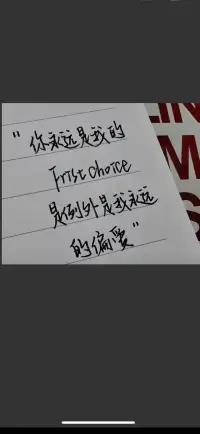 "你永远是我的
Frist choice
是例外是我永远
的偏爱"
IN
M
S